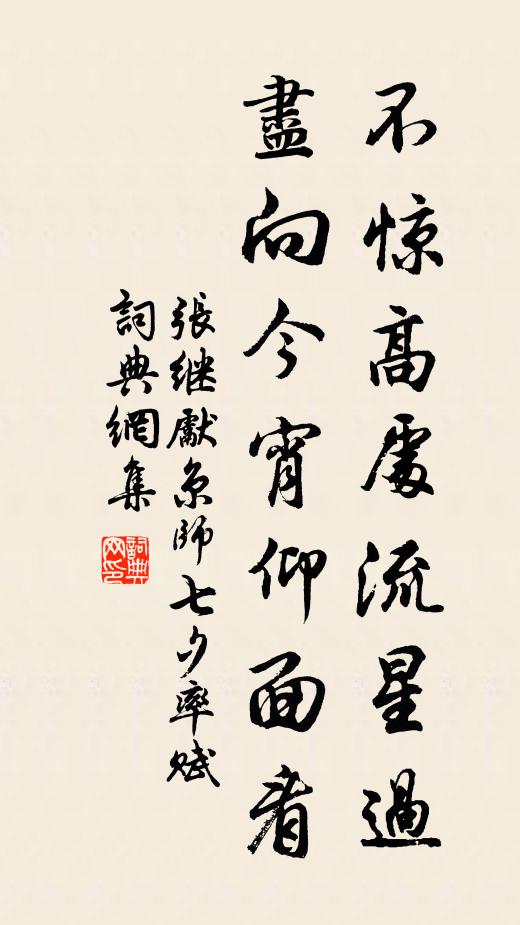 不惊高處流星過
盡向今宵仰面看
張继獻京師七夕率賦
詞典網集
詞典网印